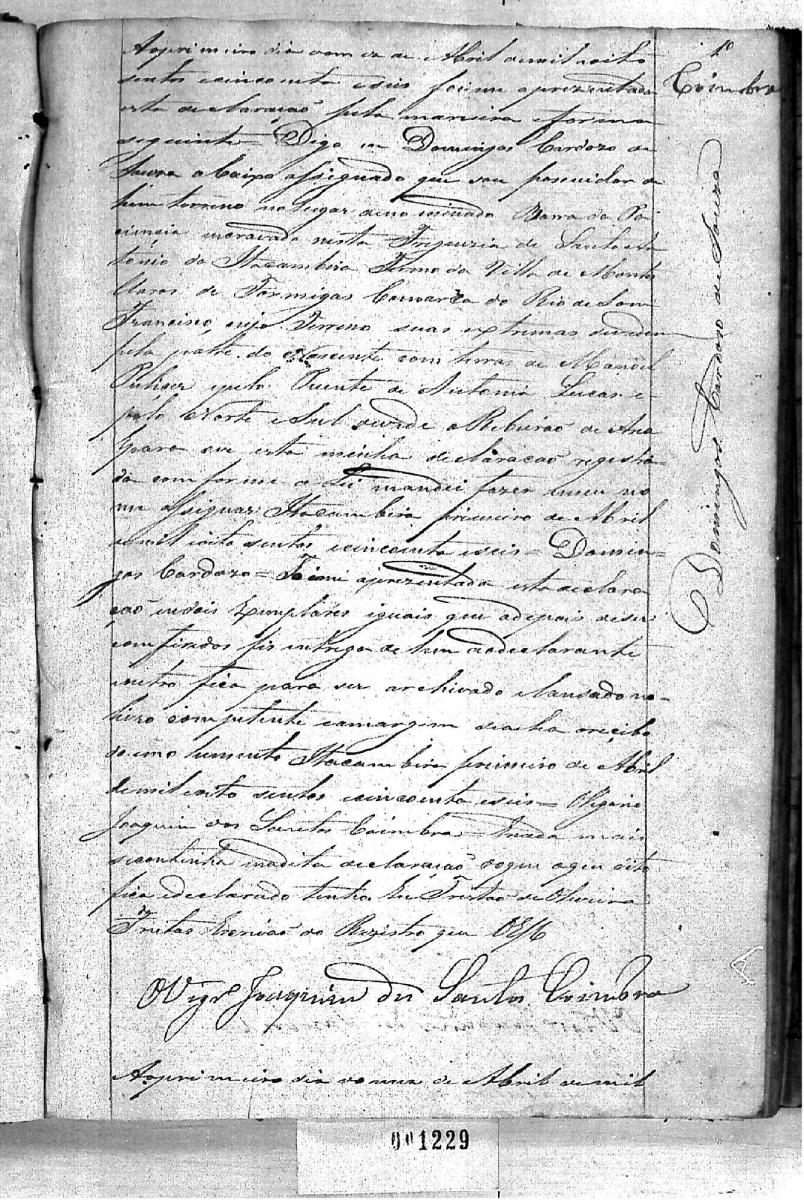 Aoprimeiro dia domez de Abril demil oito
sentos ecincoenta eseis foi me aprezentada
esta declaração pela maneira eforma
seguinte = Digo eu Domingos Cardozo de
Souza abaixo assignado que sou posuidor de
hum terreno no lugar denominado Barra da Pa
ciencia nesta Freguezia de Santo An
tonio da Itacambira Termo da Villa de Montes
Claros de Formigas Comarca do Rio de Sam
Francisco, cujo Terreno suas extremas devedem
pela parte do Nascente com terras de Manoel
epelo Puente de Antonio Lucas e
pelo Norte eSul devede o Ribeirão de Area
epara ser esta minha declaração regista
da comforme a Lei mandei fazer emeu no
me assignar Itacambira primeiro de Abril
demil oito sentos ecincoenta eseis = Domin-
gos Cardozo = Foi me aprezentada esta declara
ção em dois Exemplares iguais que adepois deser
comfiridos fis entrega de hum aodeclarante
eoutro fica para ser archivado elansado no
livro competente eamargem seacha orecibo
do emolumento Itacambira primeiro de Abril
demil eoito sentos ecincoenta eseis = OVigario
Joaquim dos Santos Coimbra = Enada mais
secontinha nadita declaração do que aqui
fica edeclarado Eu Tristão de Oliveira
Freitas Escrivão do Rezistro que
OVigrº Joaquim dos Santos Coimbra
Aoprimeiro dia domez de Abril de mil
1º
Coimbra
Domingos Cardozo de Souza
001229